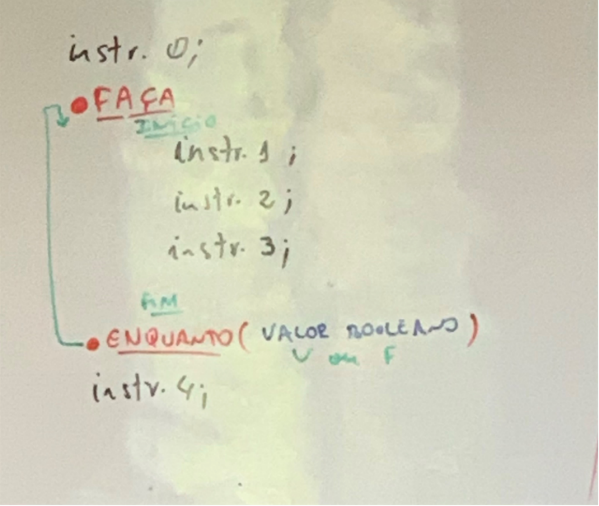 instr. 0;
FAÇA
INÍCIO
instr. 1;
instr. 2;
instr. 3;
FIM
ENQUANTO( VALOR BOOLEANO )
V ou F
instr. 4;